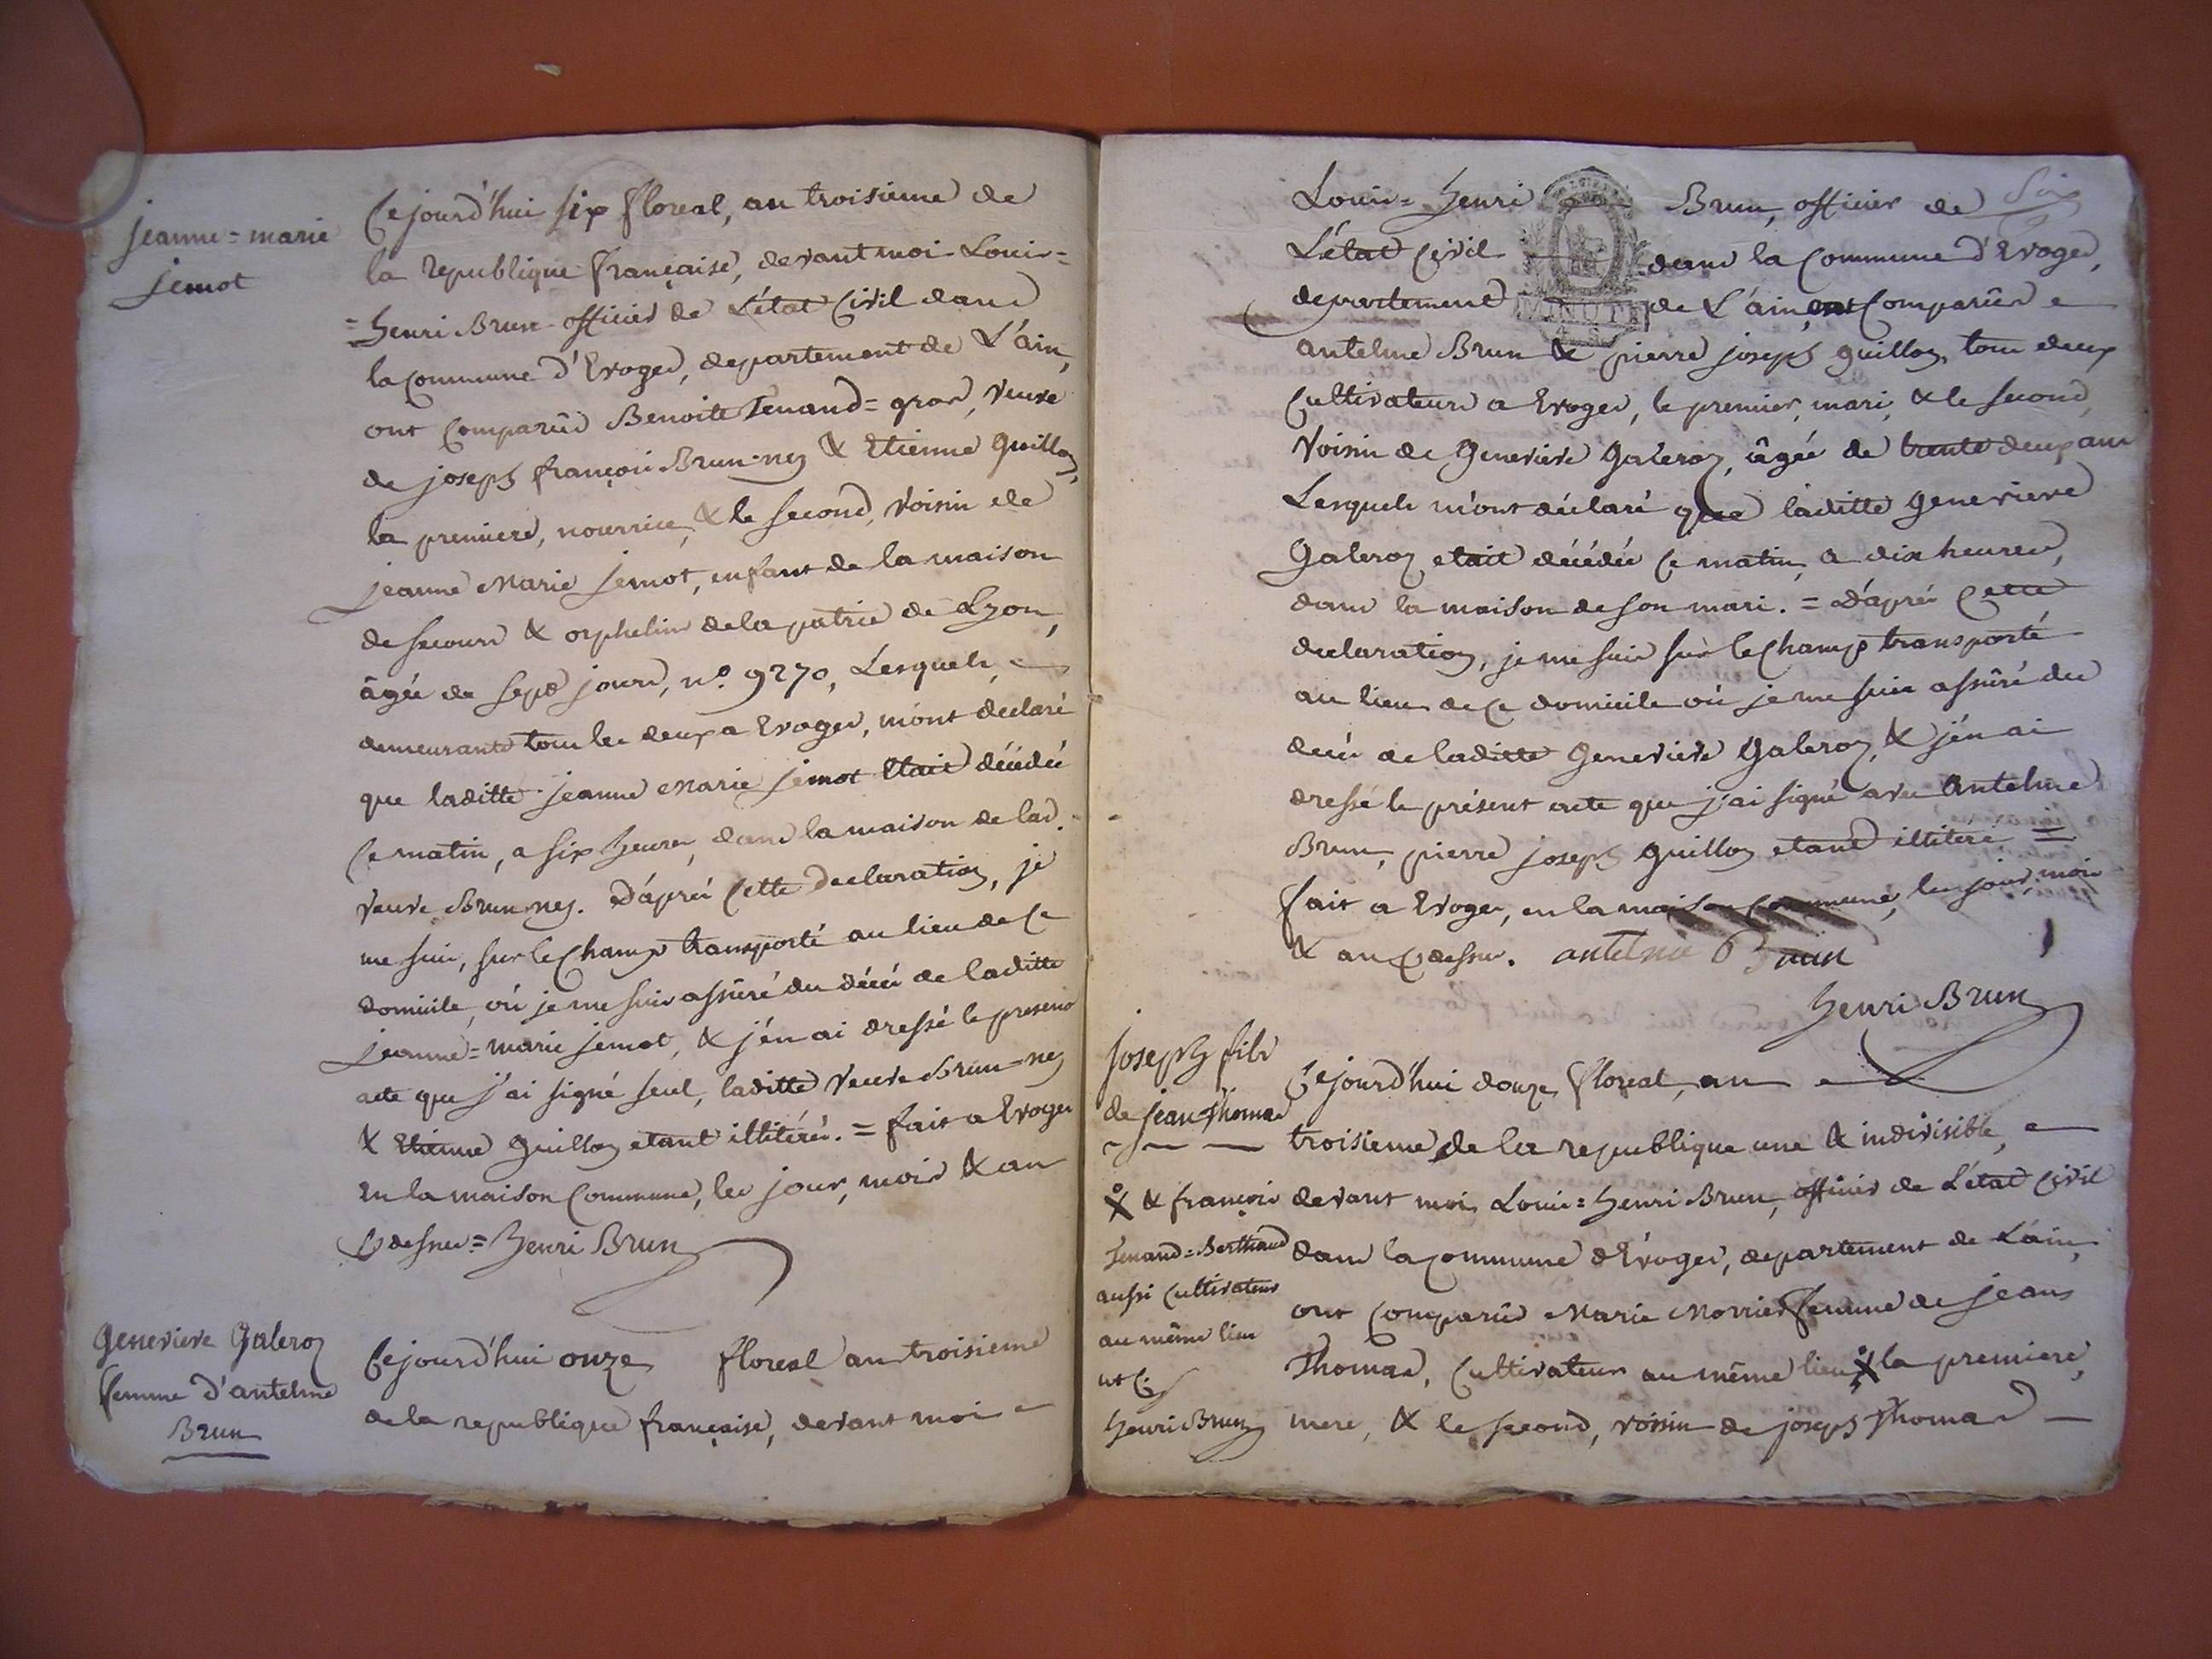 jeanne=marie
jemot
Cejourd'hui six floreal, an troisieme de
la republique française, devant moi Louis=
=henri Brun officier de L'état Civil dans
la commune d'Evoges, departement de L'ain,
ont comparûs Benoite Tenand=gros, veuve
de joseph françois Brun-ney & Etienne Guillon,
la premiere, nourrice, & le second, voisin de
jeanne Marie jemot, enfant de la maison
de secours & orphelins de la patrie de Lyon,
âgée de sept jours, n.º 9270, Lesquels,
demeurants tous les deux a Evoges, m'ont declaré
que laditte jeanne Marie jemot Etait décédée
Ce matin, a six heures, dans la maison de lad.
veuve Brun-ney. D'après Cette declaration, je
me suis, sur le Champ transporté au lieu de ce
domicile, où je me suis assûré du décés de laditte
jeanne=marie jemot, & j'en ai dressé le present
acte que j'ai signé seul, laditte veuve Brun=ney
& Etienne Guillon etant illitérés. = fait a Evoges
en la maison Commune, les jour, mois & an
Cy dessus = henri Brun
Genevieve Galeron
femme d'antelme
Brun
Cejourd'hui onze floreal an troisieme
de la republique française, devant moi
Louis=henri Brun, officier de Six
L'état Civil dans la Commune d'Evoges,
departement de L'ain, ont Comparûs
MINUTE
antelme Brun & pierre joseph guillon, tous deux
Cultivateurs a Evoges, le premier, mari, & le second,
voisin de Genevieve Galeron, âgée de trente deux ans
Lesquels m'ont déclaré que laditte genevieve
Galeron etait décédée ce matin, a dix heures,
dans la maison de son mari. = D'après Cette
declaration, je me suis sur le Champ transporté
au lieu de Ce domicile où je me suis assûré du
decés de laditte Genevieve Galeron, & j'en ai
dressé le présent acte que j'ai signé avec Antelme
Brun, pierre joseph Guillon etand illiteré =
fait a Evoges, en la maison commune, les jour, mois
& an Cy dessus. antelme Brun
henri Brun
joseph fils
de jean Thomas
Cejourd'hui douze floreal, an
troisieme de la republique une & indivisible,
devant moi Louis=henri Brun, officier de L'état Civil
dans la commune d'Evoges, departement de L'ain,
ont comparûs Marie Morrier femme de jean
Thomas, Cultivateur au même lieu X la premiere,
mere, & le second, voisin de joseph Thomas
X & françois
Tenand=Berthaud
aussi Cultivateur
au même lieu
henri Brun